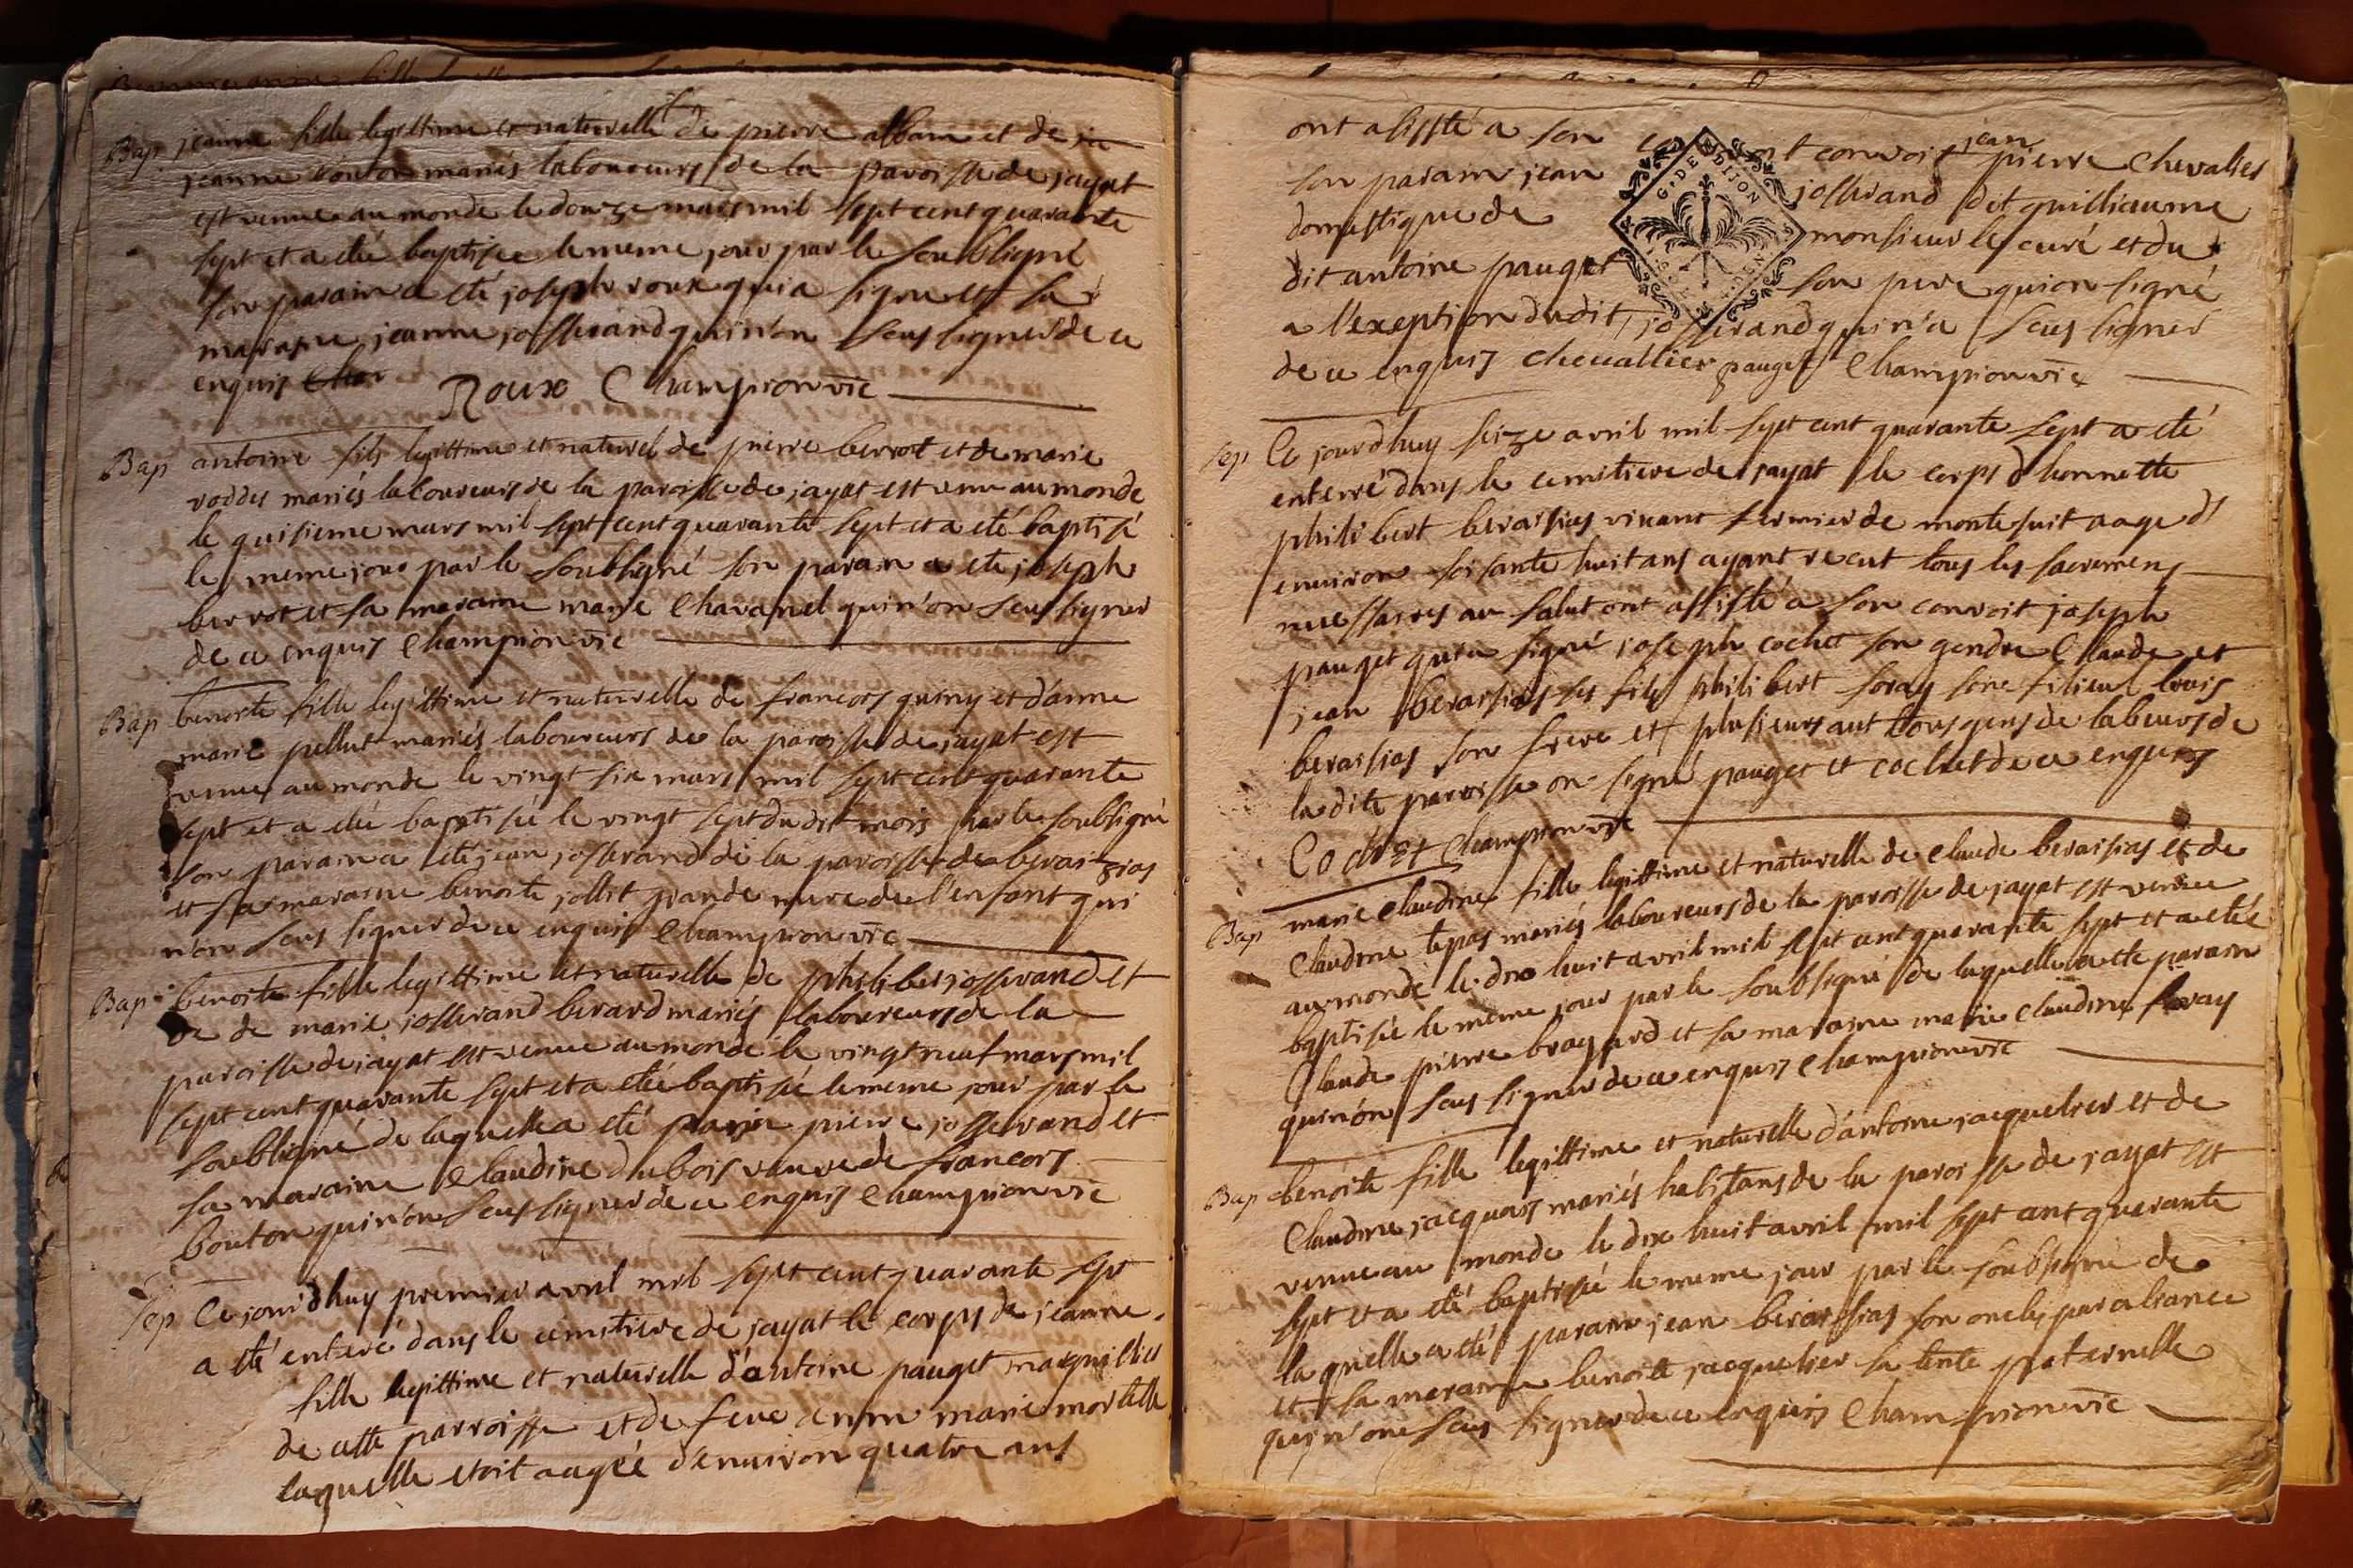 Bap jeanne fille legittime et naturelle de pierre albam et de
jeanne bouton mariés laboureurs de la paroisse de jayat
est venue au monde le douze mars mil sept cent quarante
sept et a eté baptisee le meme jour par le soubsigné
son parain a eté joseph roux qui a signe et sa
maraine jeanne josserand qui n'on sceu signer de ce
enquis
Roux Championvic
Bap antoine fils legittime et naturel de pierre berrot et de marie
voddes mariés laboureurs de la paroisse de jayat est venu au monde
le quisieme mars mil sept cent quarante sept et a eté baptisé
le meme jour par le soubsigné son parain a ete joseph
berrot et sa maraine marie Chavanel qui n'on sceu signer
de ce enquis Championvic
Bap benoite fille legittime et naturelle de francois guiny et d'anne
marie pellut mariés laboureurs de la paroisse de jayat est
venue au monde le vingt six mars mil sept cent quarante
sept et a eté baptisée le vingt sept du dit mois par le soubsigné
son parain a eté jean josserand de la paroisse de beraizias
et sa maraine benoite jollit grande mere de l'enfant qui
n'on sceu signer de ce enquis Championvic
Bap benoite fille legittime et naturelle de philiber josserand et
de marie josserand berard mariés laboureurs de la
paroisse de jayat est venue au monde le vingt neuf mars mil
sept cent quarante sept et a eté baptisée le meme jour par le
soubsigné de laquelle a eté parain pierre josserand et
sa maraine Claudine dubois veuve de francois
bouton qui n'on sceu signer de ce enquis Championvic
Sep Ce jourd'huy premier avril mil sept cent quarante sept
a eté enteré dans le cimitiere de jayat le corps de jeanne
fille legittime et naturelle d'antoine pauget marguillier
de cette parroisse et de feue anne marie mortelle
laquelle etoit aagée d'environ quatre ans
ont assisté a son convoit jean pierre Chevalier
son parain jean josserand dit guilliaume
domestique de monsieur le curé et du
dit antoine pauget son pere qui on signé
a l'exeption dudit josserand qui n'a sceu signer
de ce enquis chevallier pauget Championvic
G. DE DIJON
Sep Ce jourd'huy seize avril mil sept cent quarante sept a eté
enterré dans le cimitiere de jayat le corps d honnette
philibert beraisias vivant fermier de montesuit aage d'
environ soisante huit ans ayant recut tous les sacremens
necessaires au salut ont assisté a son convoit joseph
pauget qui a signé joseph cochet son gendre Claude et
jean beraisias ses fils philibert foray son filieul louis
beraisias son frere et plusieurs aut tous gens de labeurs de
la dite paroisse on signé pauget et cochet de ce enquis
Cochet Championvic
Bap marie Claudine fille legittime et naturelle de Claude beraisias et de
Claudine tepas mariés laboureurs de la paroisse de jayat est venue
au monde le dix huit avril mil sept cent quarante sept et a eté
baptisée le meme jour par le soubsigné de laquelle a ete parain
Claude pierre bragard et sa maraine marie Claudine foray
qui n'on sceu signer de ce enquis Championvic
Bap benoite fille legittime et naturelle d'antoine jacquelier et de
Claudine jacquais mariés habitans de la paroisse de jayat est
venue au monde le dix huit avril mil sept cent quarante
sept et a eté baptisée le meme jour par le soubsigné de
laquelle a eté parain jean beraisias son oncle par aliance
et sa maraine benoite jacquelier sa tente paternelle
qui n'one sceu signer de ce enquis Championvic